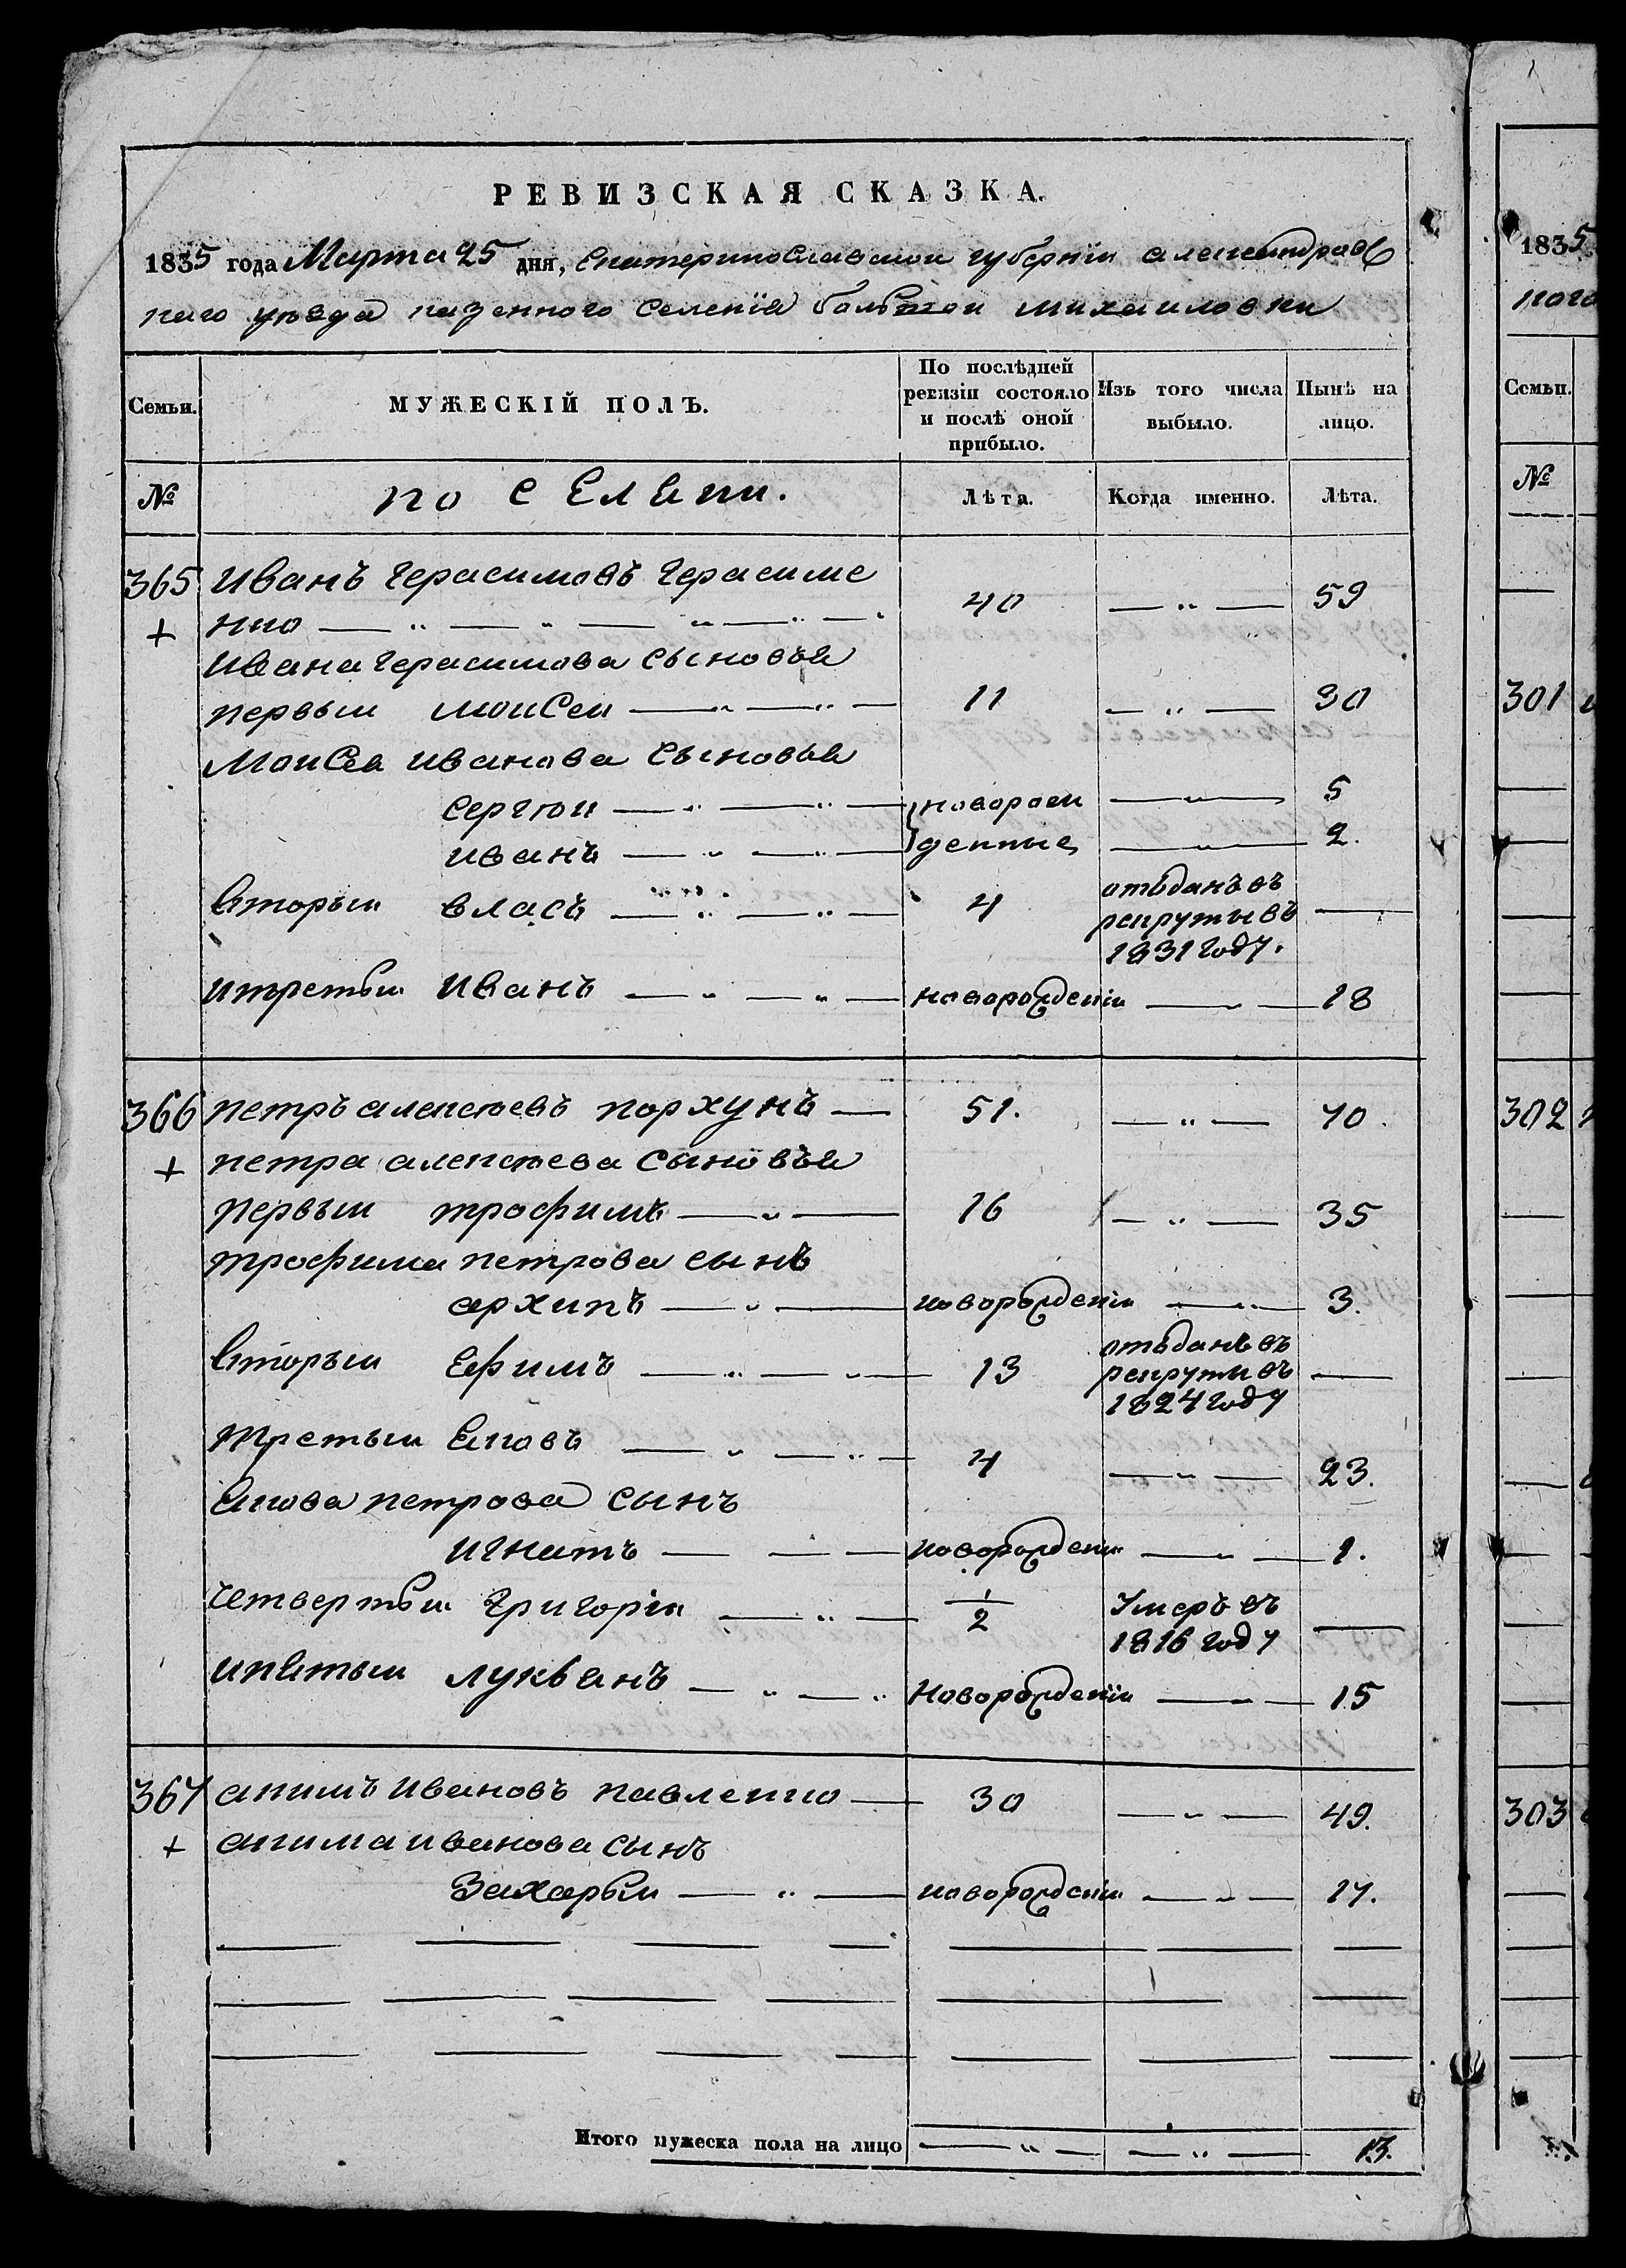 РЕВИЗСКАЯ СКАЗКА.
1835 года Марта 25 дня, Екатеринославской губернїи александров
ного уѣзда казенного селенїя большой михаиловки
Семьи.
МУЖЕСКІЙ ПОЛЪ.
По послѣдней ревизіи состояло и послѣ оной прибыло.
Изъ того числа выбыло.
Нынѣ на лицо.
№
поселяни.
Лѣта.
Когда именно.
Лѣта.
365 Иванъ Герасимовъ Герасиме
нко 40 59
Ивана Герасимова сыновья
первый моисей 11 30
Моисея иванова сыновья
сергѣй новорож 5
иванъ денные 2.
вторый власъ 4 отъданъ въ
рекруты въ
1831 году.
итретьи Иванъ новорожденіи 18
366 петръ алексѣевъ корхунъ 51. 70.
петра алексѣева сыновья
первый трофимъ 16 35
трофима петрова сынъ
архипъ новорожденіи 3.
вторый Ефимъ 13 отъданъ въ
рекруты въ
1824 году
третьи Яковъ 4 23.
Якова петрова сынъ
игнатъ новорожденіи 1.
Четвертый Григорій 1/2 Умеръ въ
1816 году
ипятый лукьянъ Новорожденіи 15
367 акимъ Ивановъ павленко 30 49.
акима иванова сынъ
Захарьи новорожденіи 17.
Итого мужеска пола на лицо 13.
1835
ного
Семьи.
№
301
302
303